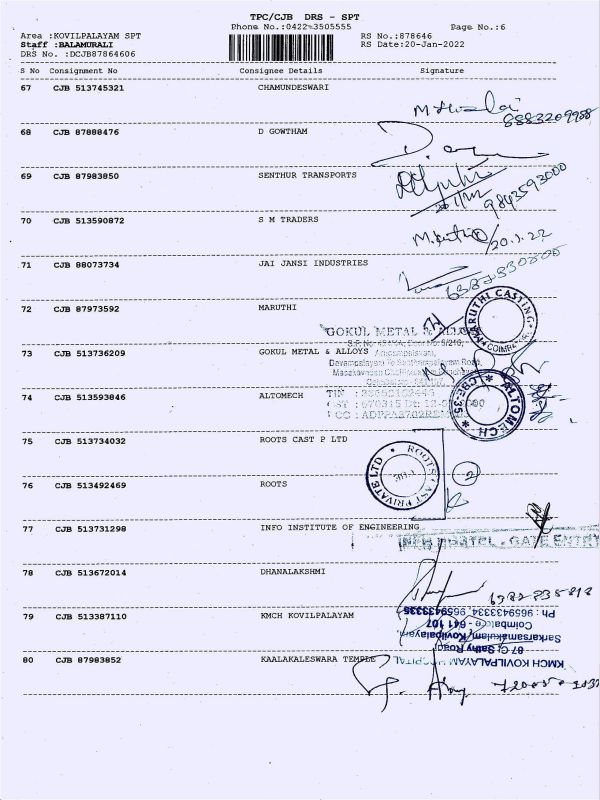 TPC/CJB DRS - SPT
Phone No.:0422-3505555
Page No.:6
Area :KOVILPALAYAM SPT
RS No.:878646
Staff :BALAMURALI
RS Date:20-Jan-2022
DRS No. :DCJB87864606
S No Consignment No Consignee Details Signature
67 CJB 513745321 CHAMUNDESWARI
8883209958
68 CJB 87888476 D GOWTHAM
69 CJB 87983850 SENTHUR TRANSPORTS
9843593000
70 CJB 513590872 S M TRADERS
20.1.22
71 CJB 88073734 JAI JANSI INDUSTRIES
72 CJB 87973592 MARUTHI
MARUTHI CASTING
COIMBATORE
GOKUL METAL & ALLOYS
73 CJB 513736209 GOKUL METAL & ALLOYS
74 CJB 513593846 ALTOMECH
ALTOMECH
CBE-35
75 CJB 513734032 ROOTS CAST P LTD
ROOTS CAST PRIVATE LTD
76 CJB 513492469 ROOTS
2
77 CJB 513731298 INFO INSTITUTE OF ENGINEERING
GATE ENTRY
78 CJB 513672014 DHANALAKSHMI
79 CJB 513387110 KMCH KOVILPALAYAM
Ph : 9659433334, 9659433335
Coimbatore - 641 107
Sarkarsamakulam, Kovilpalayam
87 G, Sathy Road
KMCH KOVILPALAYAM HOSPITAL
80 CJB 87983852 KAALAKALESWARA TEMPLE